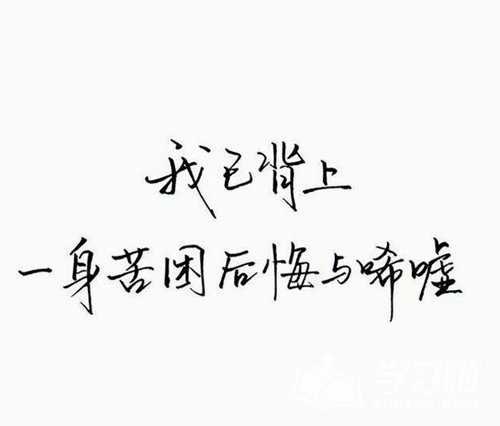 我已背上
一身苦困后悔与唏嘘